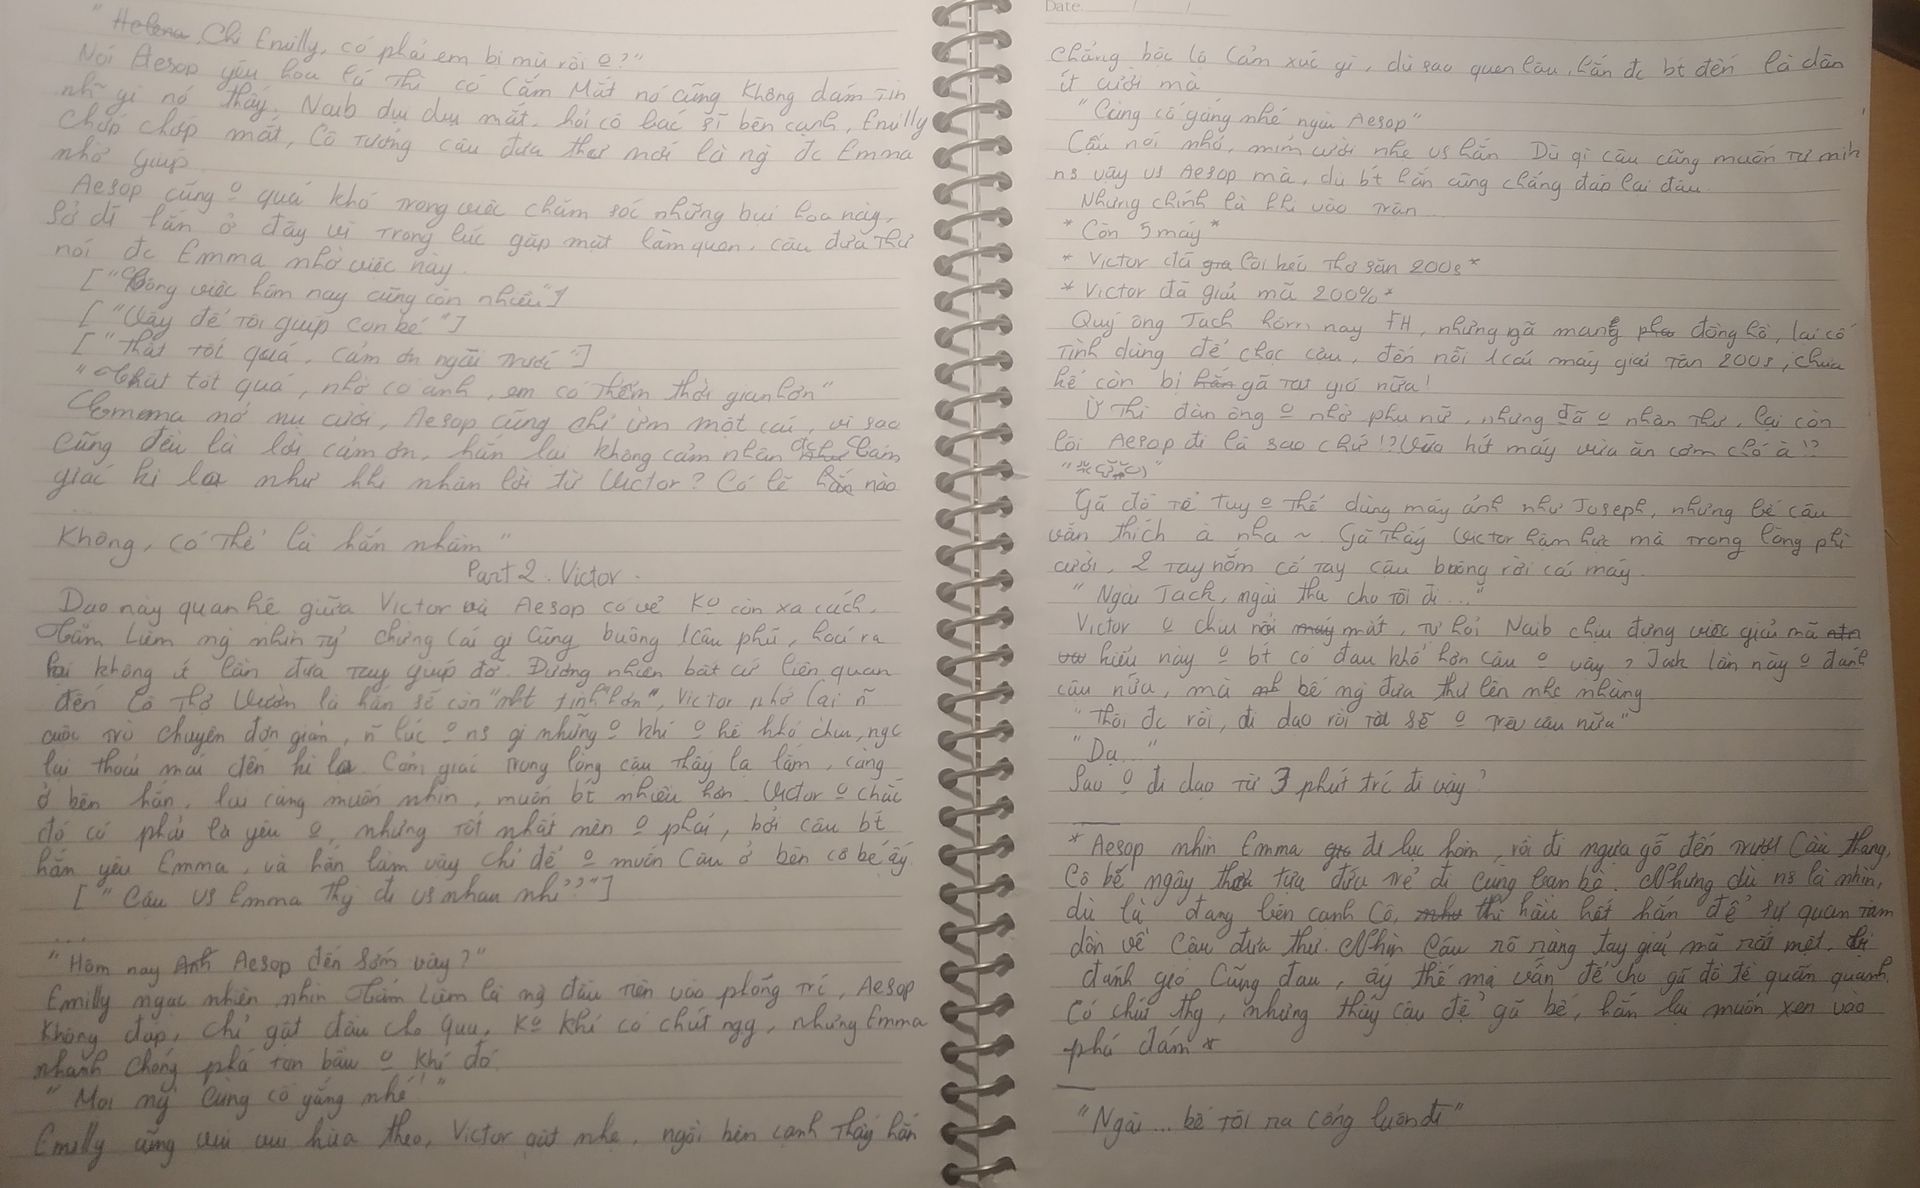 "Helena, Chị Emilly, có phải em bị mù rồi o?"
Nói Aesop yêu hoa lá thì có cắm mắt nó cũng không dám tin
nh~ gì nó thấy. Naib dụi dụi mắt, hỏi cô bác sĩ bên cạnh, Emilly
chớp chớp mắt, cô tưởng cậu đưa thư mới là ng` đc Emma
nhờ giúp.
Aesop cũng o quá khó trong việc chăm sóc những bụi hoa này,
sở dĩ hắn ở đây vì trong lúc gặp mặt làm quen, cậu đưa thư
nói đc Emma nhờ việc này.
["Công việc hôm nay cũng còn nhiều"]
["Vậy để tôi giúp con bé"]
["Thật tốt quá, cảm ơn ngài trước"]
"Thật tốt quá, nhờ có anh, em có thêm thời gian hơn"
Emma nở nụ cười, Aesop cũng chỉ ừm một cái, vì sao
cũng đều là lời cảm ơn, hắn lại không cảm nhận đc cảm
giác kì lạ như khi nhận lời từ Victor? Có lẽ nào
...
Không, có thể là hắn nhầm"
Part 2. Victor.
Dạo này quan hệ giữa Victor và Aesop có vẻ Ko còn xa cách.
Tẩm Liệm ng` nhìn tý chừng cái gì cũng buông 1 câu phũ, hoá ra
lại không ít lần đưa tay giúp đỡ. Đương nhiên bất cứ liên quan
đến Cô Thợ Vườn là hắn sẽ còn "nhiệt tình hơn", Victor nhớ lại ~n
cuộc trò chuyện đơn giản, ~n lúc o ns gì nhưng o khí o hề khó chịu, ngc
lại thoải mái đến kì lạ. Cảm giác trong lòng cậu thấy lạ lắm, càng
ở bên hắn, lại càng muốn nhìn, muốn bt nhiều hơn. Victor o chắc
đó có phải là yêu o, nhưng tốt nhất nên o phải, bởi cậu bt
hắn yêu Emma, và hắn làm vậy chỉ để o muốn cậu ở bên cô bé ấy.
["Cậu vs Emma thg` đi vs nhau nhỉ??"]
...
"Hôm nay Anh Aesop đến sớm vậy?"
Emilly ngạc nhiên nhìn Tẩm Liệm là ng` đầu tiên vào phòng trc, Aesop
không đáp, chỉ gật đầu cho qua. Ko khí có chút ngg, nhưng Emma
nhanh chóng phá tan bầu o khí đó.
"Mọi ng` cùng cố gắng nhé!"
Emilly cũng vui vui hùa theo, Victor gật nhẹ, ngồi bên cạnh thấy hắn
Date
chẳng bộc lộ cảm xúc gì, dù sao quen lâu, hắn đc bt đến là dân
ít cười mà
"Cùng cố gắng nhé ngài Aesop"
Cậu nói nhỏ, mỉm cười nhẹ vs hắn. Dù gì cậu cũng muốn tự mình
ns vậy vs Aesop mà, dù bt hắn cũng chẳng đáp lại đâu.
Nhưng chính là khi vào trận...
*Còn 5 máy*
*Victor đã gia lôi kéo thợ săn 200s*
*Victor đã giải mã 200%*
Quý ông Jack hôm nay FH, nhưng gã mang đồng hồ, lại cố
tình dùng để chọc cậu, đến nỗi 1 cái máy giải tận 200s, chưa
kể còn bị hắn gã tạt gió nữa!
Ừ thì đàn ông o nhờ phụ nữ, nhưng đã o nhận thư, lại còn
lôi Aesop đi là sao chứ!? Vừa hít máy vừa ăn cơm chó à!?
Gã đồ tể tuy o thể dùng máy ảnh như Joseph, nhưng bế cậu
vẫn thích à nha ~ Gã thấy Victor hậm hực mà trong lòng phì
cười, 2 tay nắm cổ tay cậu buông rời cái máy.
"Ngài Jack, ngài tha cho tôi đi..."
Victor o chịu nổi máy mất, tự hỏi Naib chịu đựng việc giải mã
kiểu này o bt có đau khổ hơn cậu o vậy? Jack lần này o đánh
cậu nữa, mà bế ng` đưa thư lên nhẹ nhàng
"Thôi đc rồi, đi dạo rồi tôi sẽ o trêu cậu nữa"
"Dạ..."
Sao o đi dạo từ 3 phút trc đi vậy?
*Aesop nhìn Emma đi lục hòm, rồi đi ngựa gỗ đến trượt cầu thang,
Cô bé ngây thơ tựa đứa trẻ đi cùng bạn bè. Nhưng dù ns là nhìn,
dù là đang bên cạnh cô, như thì hầu hết hắn để sự quan tâm
dồn về cậu đưa thư. Nhìn cậu rõ ràng tay giải mã rất mệt, bị
đánh gió cũng đau, ấy thế mà vẫn để cho gã đồ tể quấn quanh.
Có chút thg, nhưng thấy cậu để gã bế, hắn lại muốn xen vào
phá đám*
"Ngài... bế tôi ra cổng luôn đi"